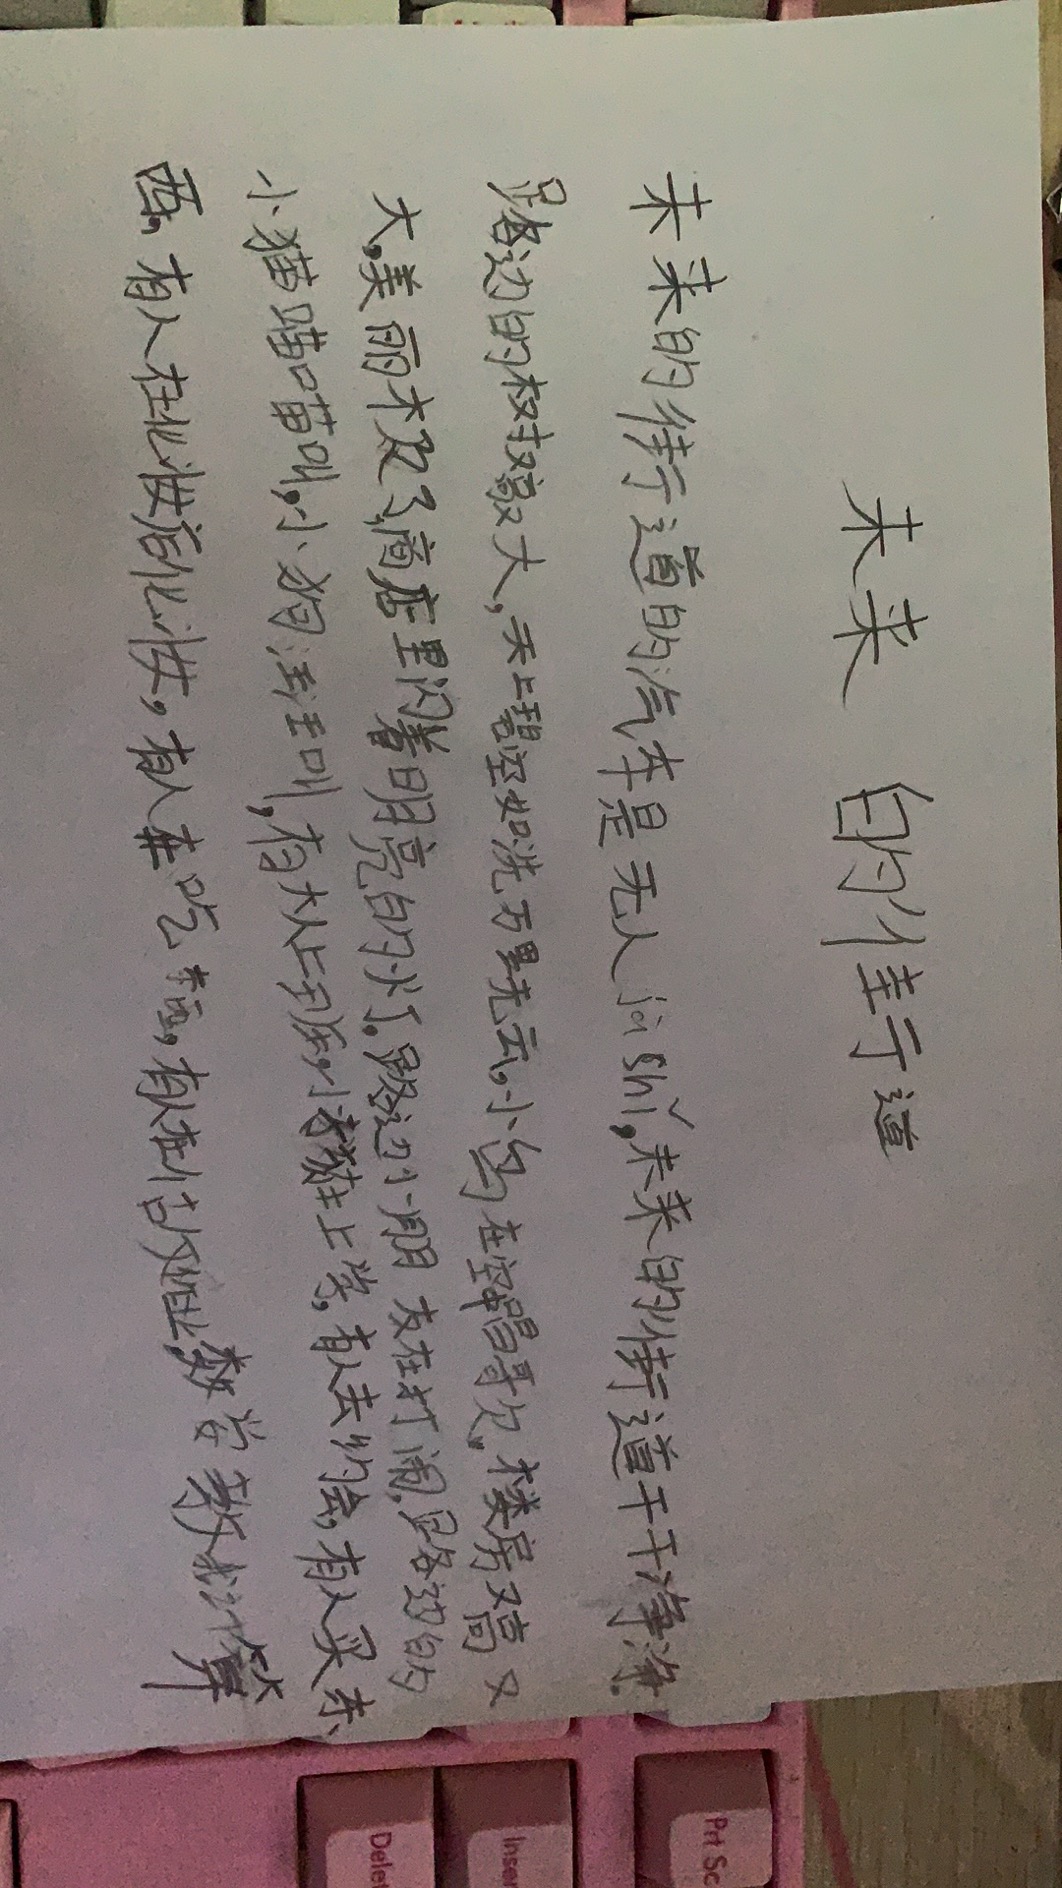 未来 的街道
未来的街道的汽车是无人jià shǐ,未来的街道干干净净.
路边的树又高又大,天上碧空如洗万里无云,小鸟在空中唱哥欠,楼房又高又
大,美丽不及了,商店里闪着明亮的火丁.路边小朋友在打闹,路边的
小猫喵喵叫,小狗汪汪叫,有大人上班,小孩上学,有人去约会,有人买东
西,有人在,有人在吃,有人在,数学教我计算
Prt Sc
Inser
Delet